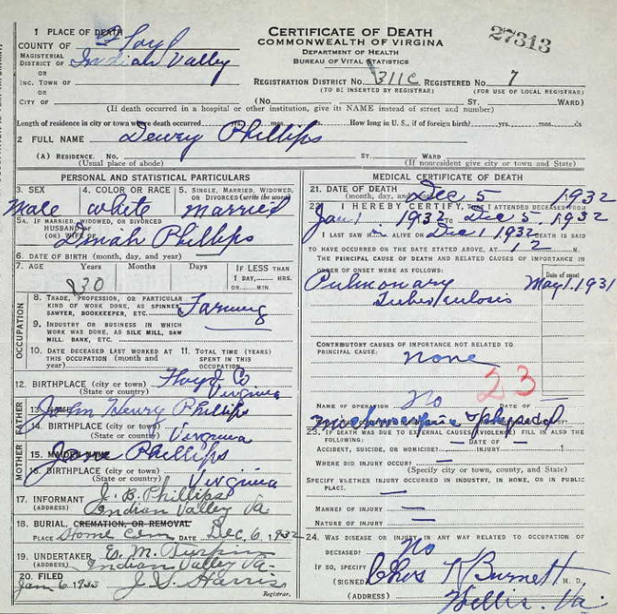 1 PLACE OF DEATH
COUNTY OF Floyd
MAGISTERIAL DISTRICT OF Indian Valley
OR
INC. TOWN OF
OR
CITY OF
CERTIFICATE OF DEATH
COMMONWEALTH OF VIRGINIA
DEPARTMENT OF HEALTH
BUREAU OF VITAL STATISTICS
27313
REGISTRATION DISTRICT NO. 311C REGISTERED NO 7
(TO BE INSERTED BY REGISTRAR) (FOR USE OF LOCAL REGISTRAR)
(No ST. WARD)
(If death occurred in a hospital or other institution, give its NAME instead of street and number)
Length of residence in city or town where death occurred yrs. mos. ds. How long in U. S., if of foreign birth? yrs. mos. ds
2 FULL NAME Dewry Phillips
(A) RESIDENCE. No. ST. WARD
(Usual place of abode) (If nonresident give city or town and State)
PERSONAL AND STATISTICAL PARTICULARS
3. SEX 4. COLOR OR RACE 5. SINGLE, MARRIED, WIDOWED, OR DIVORCED (write the word)
Male white married
5A. IF MARRIED, WIDOWED, OR DIVORCED
HUSBAND OF
(OR) WIFE OF Dinah Phillips
6. DATE OF BIRTH (month, day, and year)
7. AGE Years Months Days IF LESS THAN
1 DAY, HRS.
OR MIN.
30
OCCUPATION
8. TRADE, PROFESSION, OR PARTICULAR
KIND OF WORK DONE, AS SPINNER,
SAWYER, BOOKKEEPER, ETC. Farming
9. INDUSTRY OR BUSINESS IN WHICH
WORK WAS DONE, AS SILK MILL, SAW
MILL, BANK, ETC.
10. DATE DECEASED LAST WORKED AT
THIS OCCUPATION (month and
year)
11. TOTAL TIME (YEARS)
SPENT IN THIS
OCCUPATION
12. BIRTHPLACE (city or town) Floyd Co
(State or country) Virginia
FATHER
13. NAME John Henry Phillips
14. BIRTHPLACE (city or town)
(State or country) Virginia
MOTHER
15. MAIDEN NAME Jane Phillips
16. BIRTHPLACE (city or town)
(State or country) Virginia
17. INFORMANT J. B. Phillips
Indian Valley Va
18. BURIAL, CREMATION, OR REMOVAL
PLACE Home Cem DATE Dec, 6, 1932
19. UNDERTAKER E. M. Turpin
Indian Valley Va-
20. FILED
Jan 6 1933 J. V. Harris
Registrar.
MEDICAL CERTIFICATE OF DEATH
21. DATE OF DEATH
(month, day, and year) Dec 5 1932
22. I HEREBY CERTIFY, THAT I ATTENDED DECEASED FROM
Jan 1 1932 TO Dec 5. 1932
I LAST SAW him ALIVE ON Dec 1 1932 DEATH IS SAID
TO HAVE OCCURRED ON THE DATE STATED ABOVE, AT 12 M.
THE PRINCIPAL CAUSE OF DEATH AND RELATED CAUSES OF IMPORTANCE IN
ORDER OF ONSET WERE AS FOLLOWS:
Date of onset
Pulmonary May 1. 1931
Tuberculosis
CONTRIBUTORY CAUSES OF IMPORTANCE NOT RELATED TO
PRINCIPAL CAUSE:
none
23
NAME OF OPERATION No DATE OF
23. IF DEATH WAS DUE TO EXTERNAL CAUSES (VIOLENCE) FILL IN ALSO THE
FOLLOWING: — DATE OF —
ACCIDENT, SUICIDE, OR HOMICIDE? INJURY
WHERE DID INJURY OCCUR? —
(Specify city or town, county, and State)
SPECIFY WHETHER INJURY OCCURRED IN INDUSTRY, IN HOME, OR IN PUBLIC
PLACE. —
MANNER OF INJURY —
NATURE OF INJURY —
24. WAS DISEASE OR INJURY IN ANY WAY RELATED TO OCCUPATION OF
DECEASED? No
IF SO, SPECIFY
(SIGNED) Chas K Burnett M. D.
Willis Va.